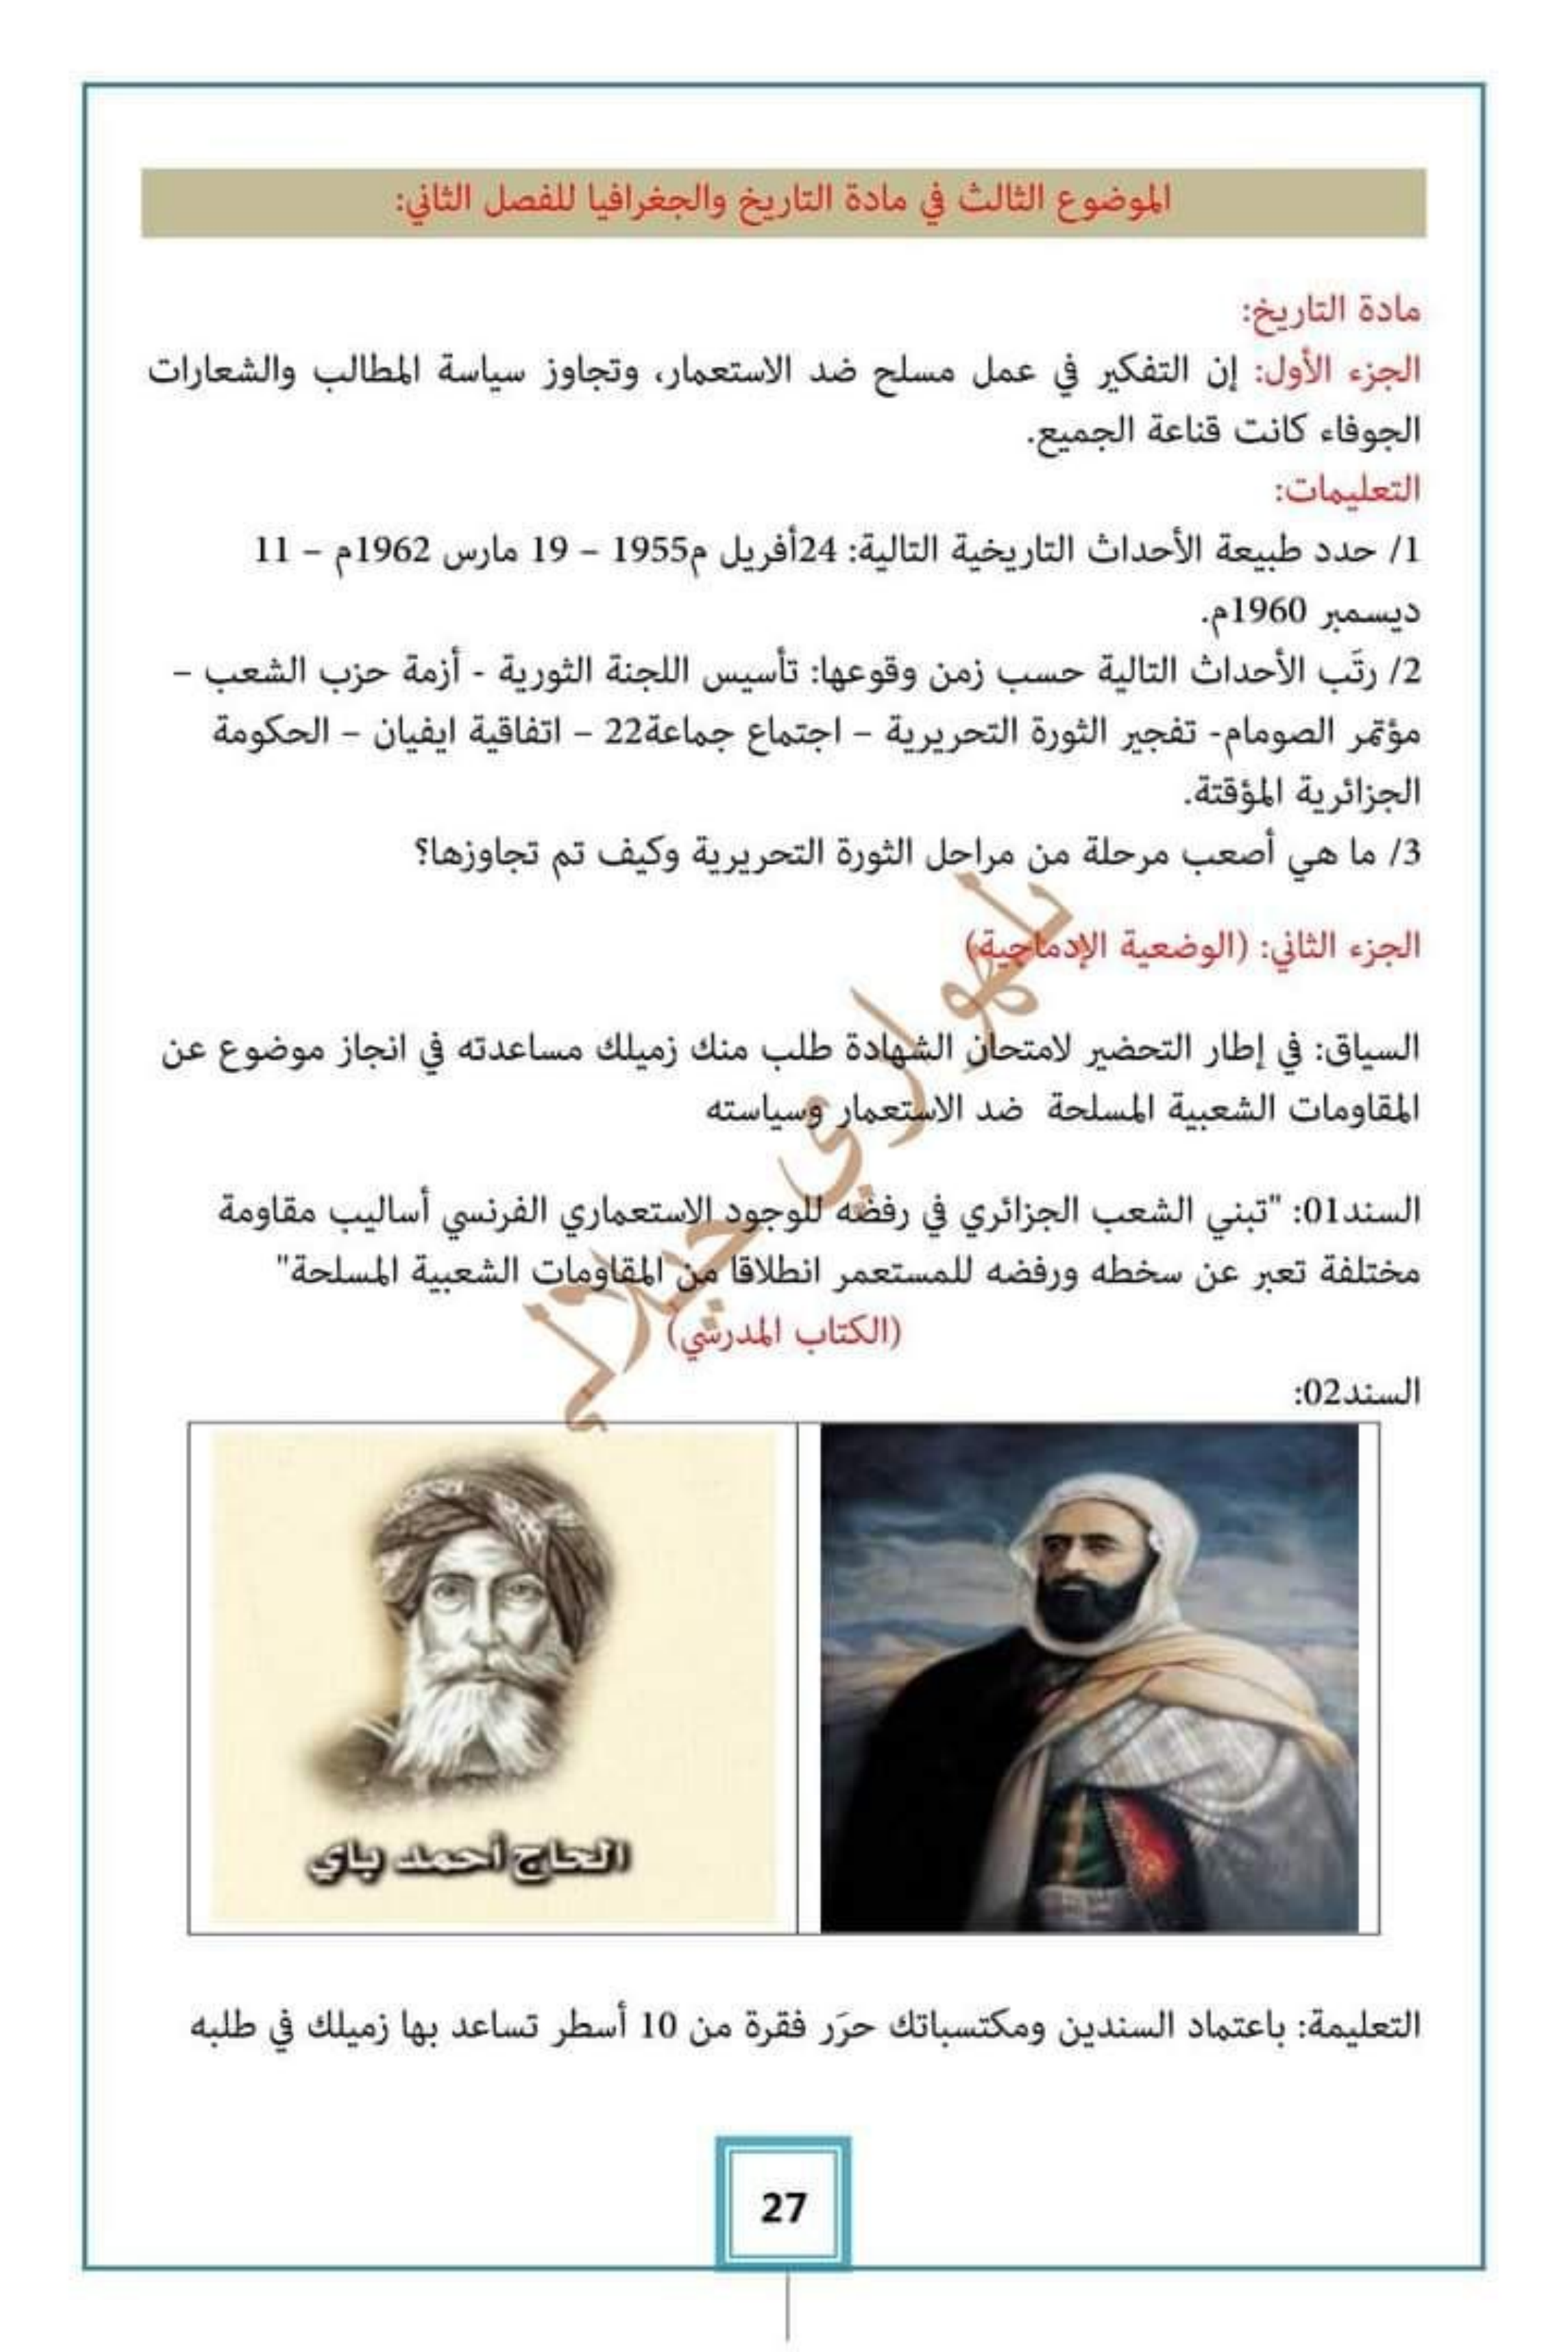 الموضوع الثالث في مادة التاريخ والجغرافيا للفصل الثاني:
مادة التاريخ:
الجزء الأول: إن التفكير في عمل مسلح ضد الاستعمار، وتجاوز سياسة المطالب والشعارات
الجوفاء كانت قناعة الجميع.
التعليمات:
1/ حدد طبيعة الأحداث التاريخية التالية: 24أفريل م1955 – 19 مارس 1962م – 11
ديسمبر 1960م.
2/ رتَب الأحداث التالية حسب زمن وقوعها: تأسيس اللجنة الثورية - أزمة حزب الشعب –
مؤتمر الصومام- تفجير الثورة التحريرية – اجتماع جماعة22 – اتفاقية ايفيان – الحكومة
الجزائرية المؤقتة.
3/ ما هي أصعب مرحلة من مراحل الثورة التحريرية وكيف تم تجاوزها؟
الجزء الثاني: (الوضعية الإدماجية)
السياق: في إطار التحضير لامتحان الشهادة طلب منك زميلك مساعدته في انجاز موضوع عن
المقاومات الشعبية المسلحة ضد الاستعمار وسياسته
السند01: "تبني الشعب الجزائري في رفضه للوجود الاستعماري الفرنسي أساليب مقاومة
مختلفة تعبر عن سخطه ورفضه للمستعمر انطلاقا من المقاومات الشعبية المسلحة"
(الكتاب المدرسي)
السند02:
الحاج أحمد باي
التعليمة: باعتماد السندين ومكتسباتك حرَر فقرة من 10 أسطر تساعد بها زميلك في طلبه
27
بلهواري جيلالي